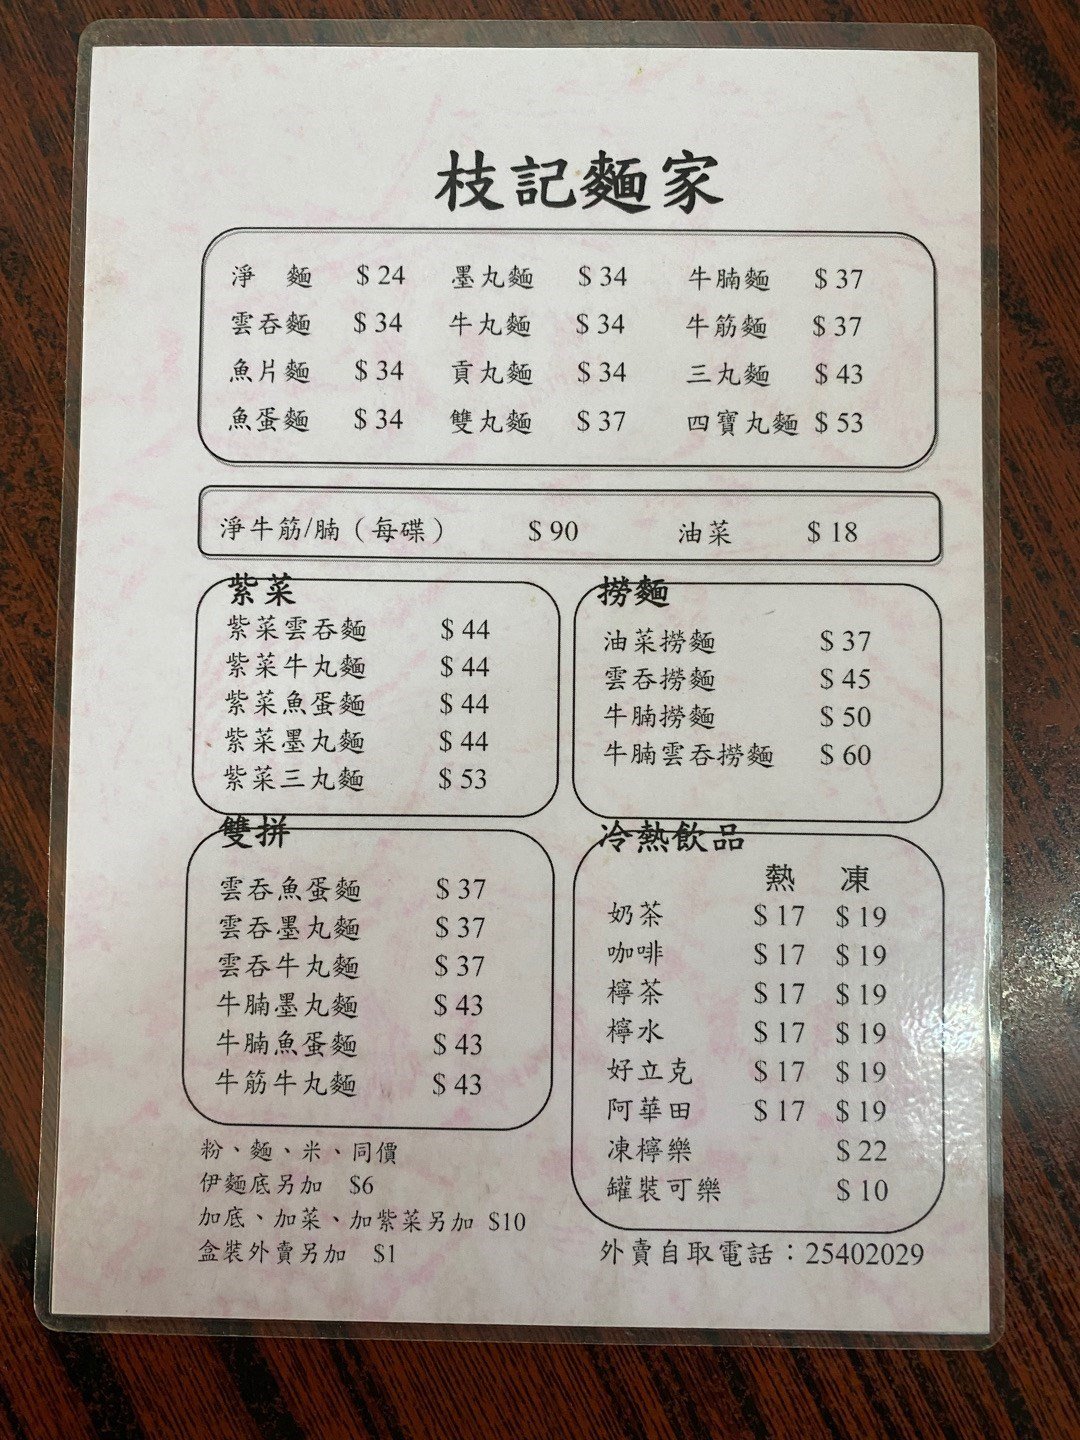 枝記麵家
淨　麵 $24 墨丸麵 $34 牛腩麵 $37
雲吞麵 $34 牛丸麵 $34 牛筋麵 $37
魚片麵 $34 貢丸麵 $34 三丸麵 $43
魚蛋麵 $34 雙丸麵 $37 四寶丸麵 $53
淨牛筋/腩（每碟） $90 油菜 $18
紫菜
紫菜雲吞麵 $44
紫菜牛丸麵 $44
紫菜魚蛋麵 $44
紫菜墨丸麵 $44
紫菜三丸麵 $53
撈麵
油菜撈麵 $37
雲吞撈麵 $45
牛腩撈麵 $50
牛腩雲吞撈麵 $60
雙拼
雲吞魚蛋麵 $37
雲吞墨丸麵 $37
雲吞牛丸麵 $37
牛腩墨丸麵 $43
牛腩魚蛋麵 $43
牛筋牛丸麵 $43
冷熱飲品
熱 凍
奶茶 $17 $19
咖啡 $17 $19
檸茶 $17 $19
檸水 $17 $19
好立克 $17 $19
阿華田 $17 $19
凍檸樂 $22
罐裝可樂 $10
粉、麵、米、同價
伊麵底另加 $6
加底、加菜、加紫菜另加 $10
盒裝外賣另加 $1
外賣自取電話：25402029